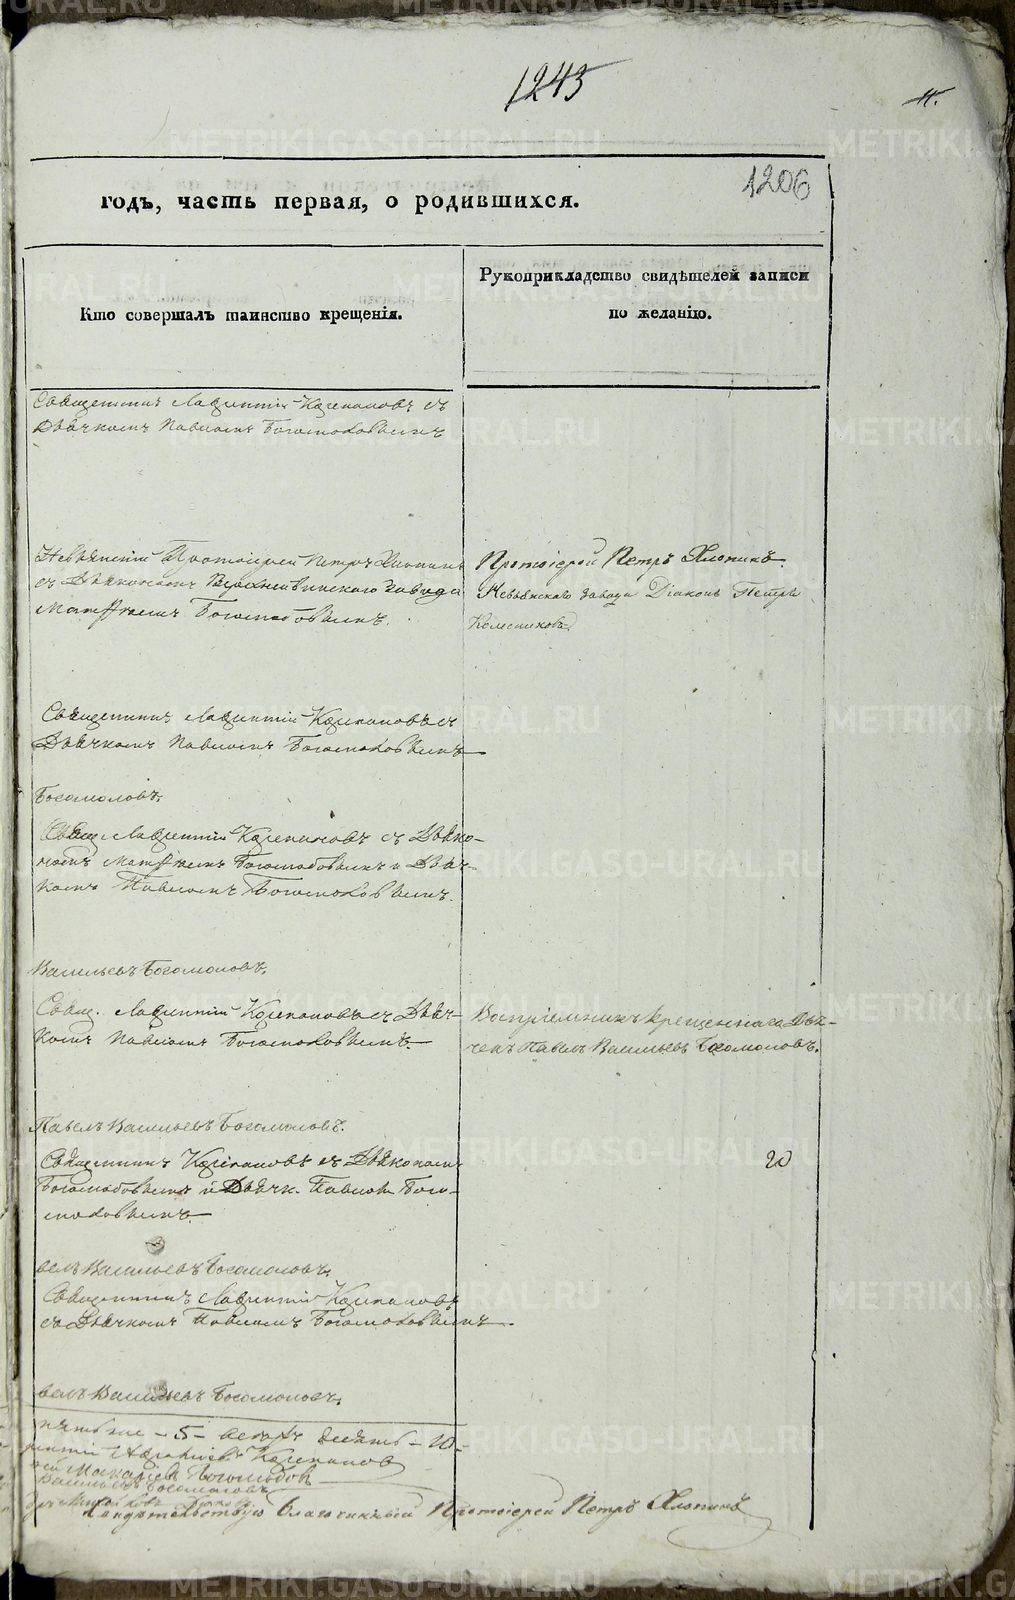 1243
11.
1206
годъ, часть первая, о родившихся.
Кто совершалъ таинство крещенія.
Рукоприкладство свидѣтелей записи
по желанію.
Священникъ Лаврентій Карпановъ съ
Дьячкомъ Павломъ Богомоловымъ
Невьянскій Протоіерей Петръ Хлопинъ
съ Діакономъ завода
Матфѣемъ Боголюбовымъ.
Протоіерей Петръ Хлопинъ.
Невьянскаго завода Діаконъ Петръ
Колесниковъ
Священникъ Лаврентій съ
Дьячкомъ Павломъ Богомоловымъ
Богомоловъ.
Свящ. Лаврентій съ Діако-
номъ Матфѣемъ Боголюбовымъ и Дьяч-
комъ Павломъ Богомоловымъ.
Васильевъ Богомоловъ.
Свящ. Лаврентій съ Дьяч-
комъ Павломъ Богомоловымъ.
Воспріемникъ крещеннаго Дья-
чекъ Павелъ Васильевъ Богомоловъ.
Павелъ Васильевъ Богомоловъ.
Священникъ съ Діакономъ
Боголюбовымъ и Дьячк. Павломъ Бого-
моловымъ.
20
велъ Васильевъ Богомоловъ.
Священникъ Лаврентій
съ Дьячкомъ Павломъ Богомоловымъ.
велъ Васильевъ Богомоловъ.
– 5 – десять – 10 –
Боголюбовъ
Васильевъ Богомоловъ
Свидѣтельствую Благочинный Протоіерей Петръ Хлопинъ
METRIKI.GASO-URAL.RU